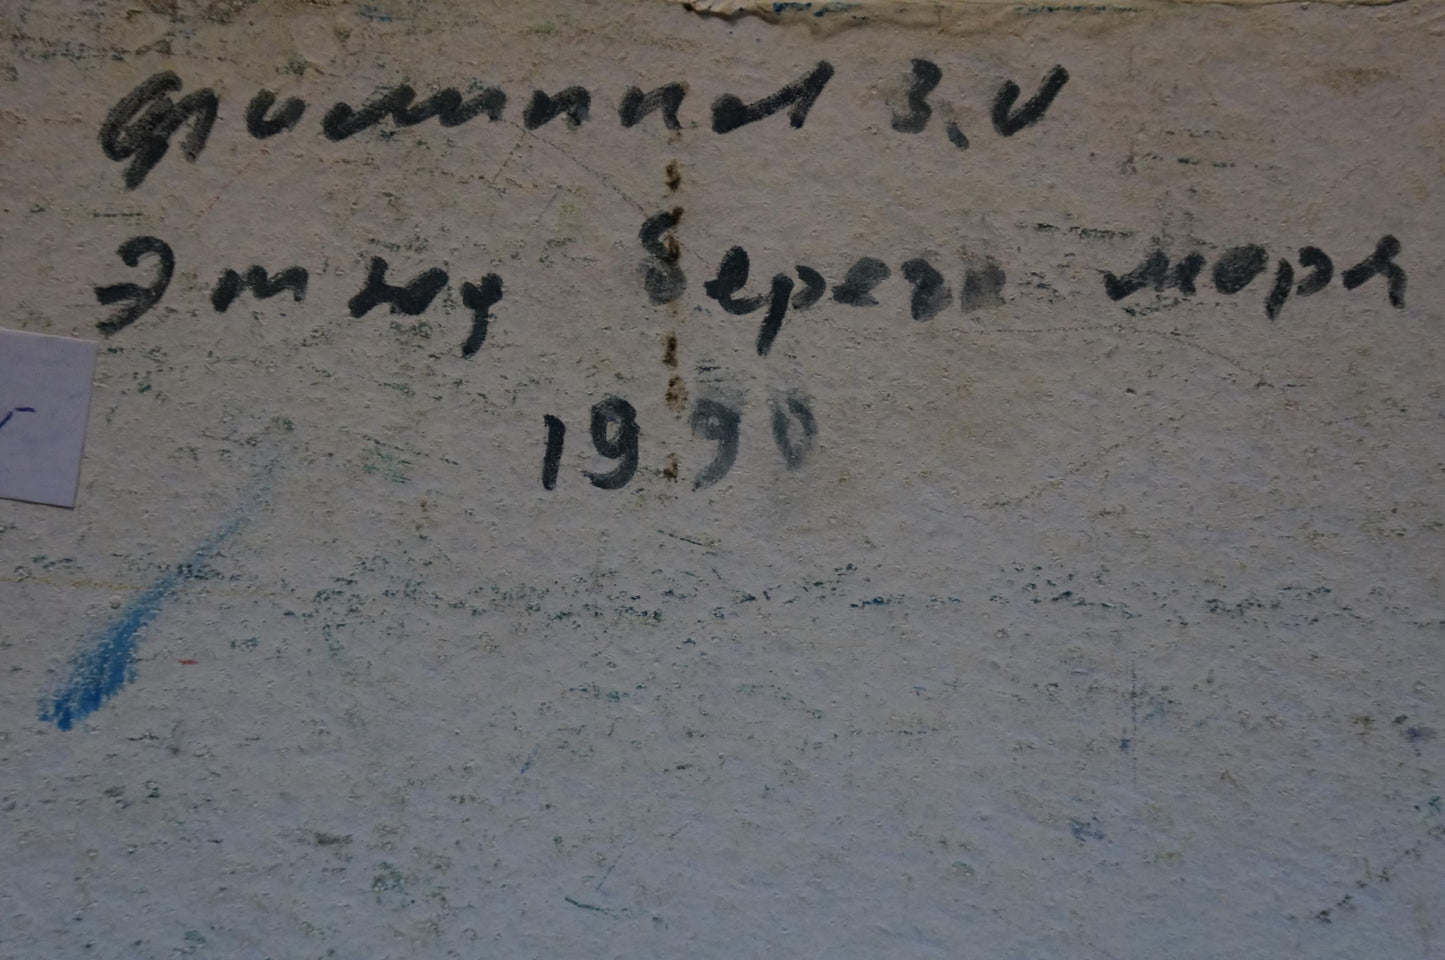 З.И
Этюд Берег моря
1990